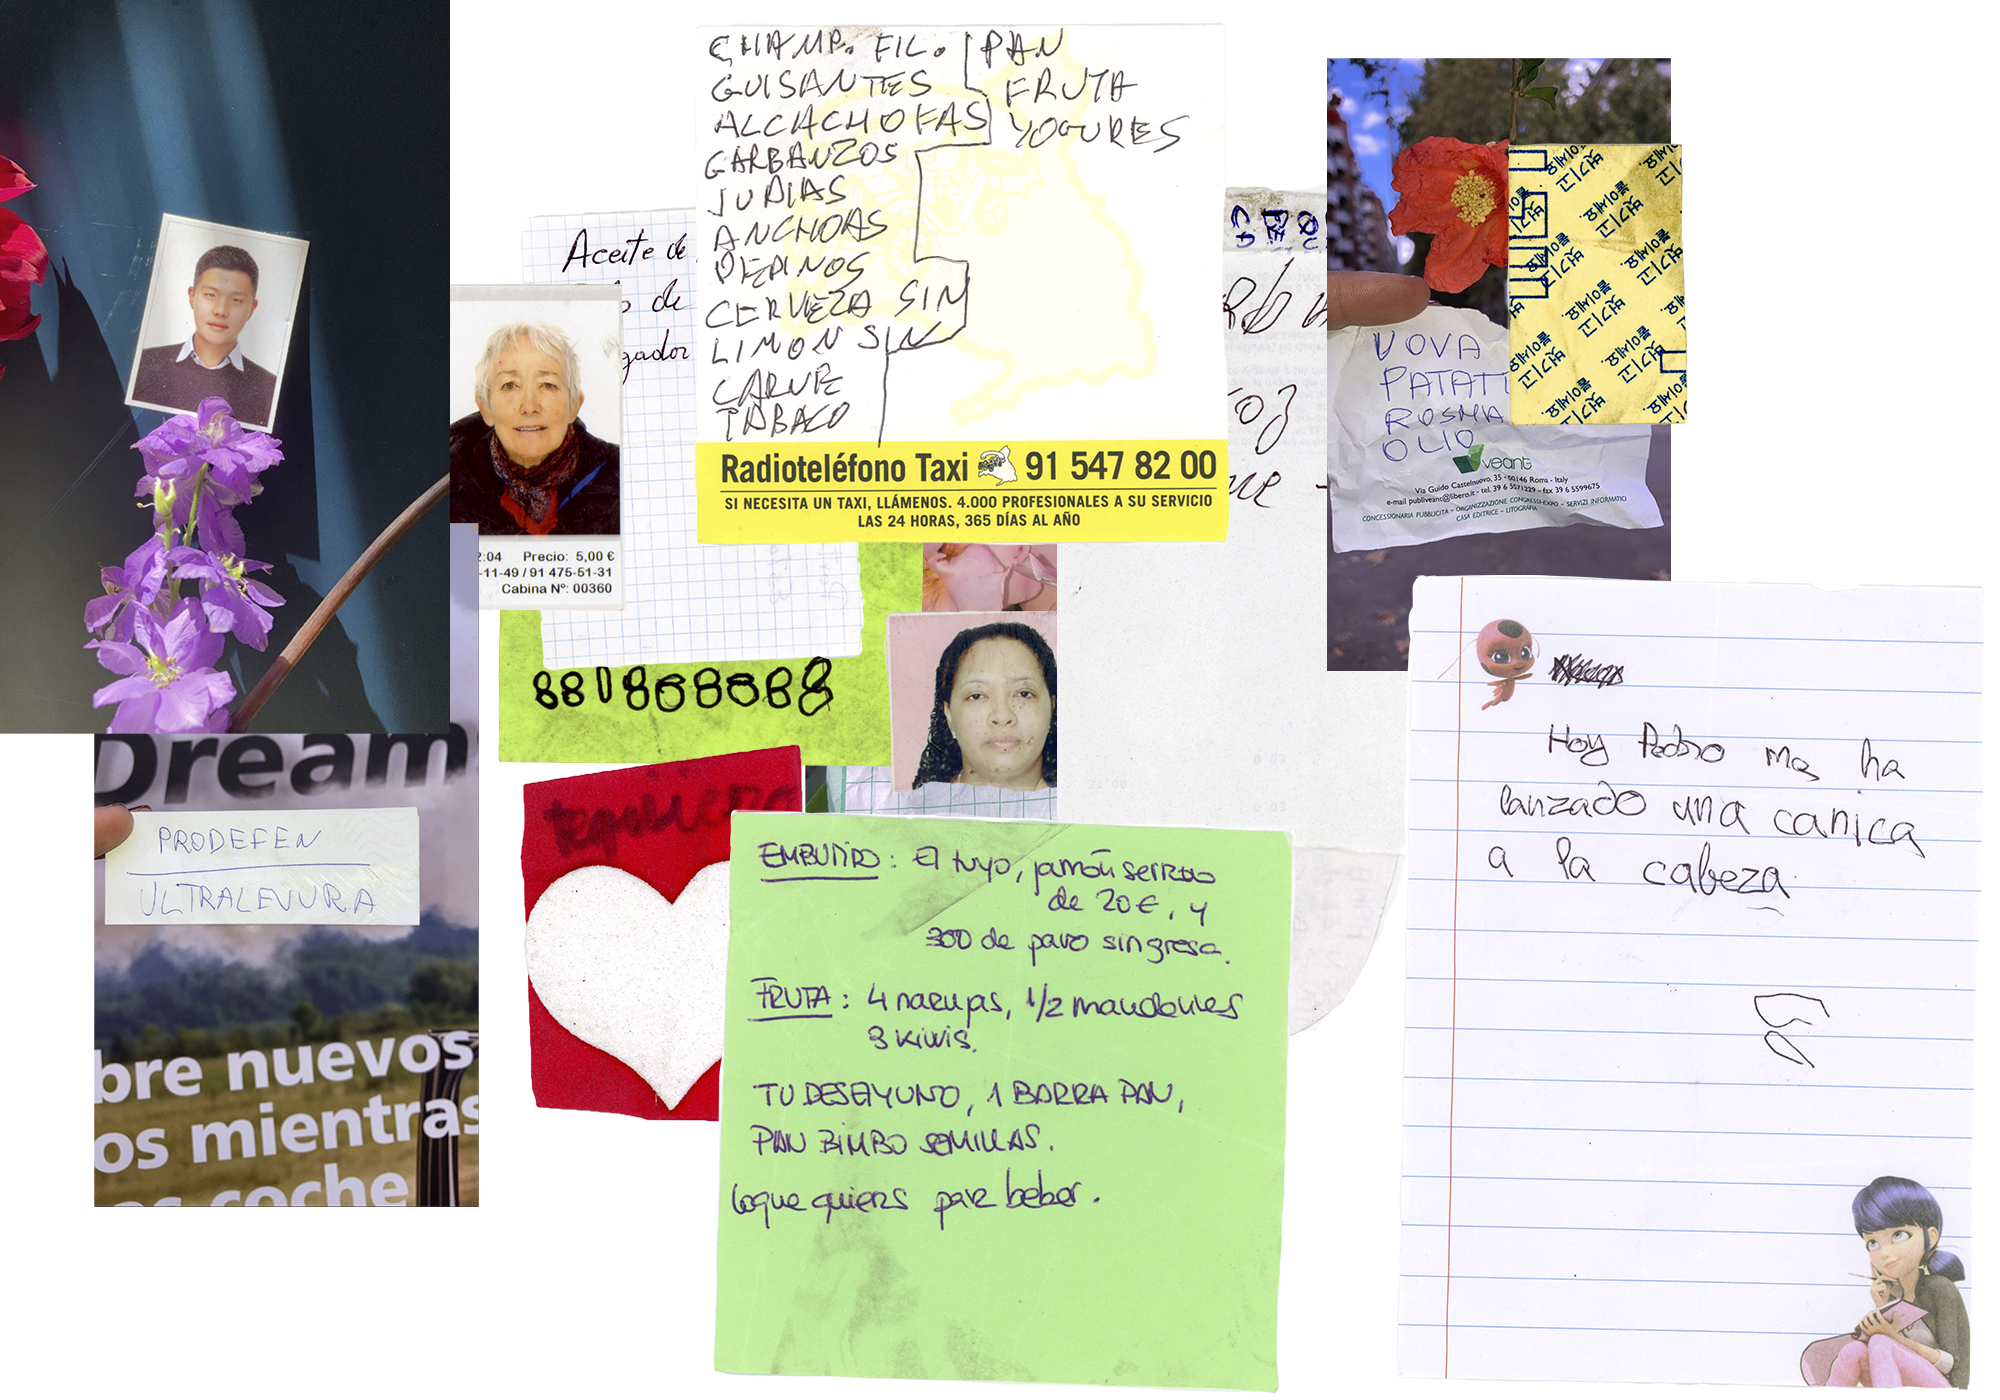 CHAMP. FIL.
GUISANTES
ALCACHOFAS
GARBANZOS
JUDIAS
ANCHOAS
PEPINOS
CERVEZA SIN
LIMON SIN
CARNE
TABACO
PAN
FRUTA
YOGURES
Radioteléfono Taxi 91 547 82 00
SI NECESITA UN TAXI, LLÁMENOS. 4.000 PROFESIONALES A SU SERVICIO
LAS 24 HORAS, 365 DÍAS AL AÑO
Aceite de
de
gador
2:04 Precio: 5,00 €
-11-49 / 91 475-51-31
Cabina Nº: 00360
UOVA
PATAT
ROSMA
OLIO
veant
Via Guido Castelnuovo, 35 - 00146 Roma - Italy
e-mail publiveant@libero.it - tel. 39 6 5571229 - fax 39 6 5599675
CONCESSIONARIA PUBBLICITÀ - ORGANIZZAZIONE CONGRESSI-EXPO - SERVIZI INFORMATICI
CASA EDITRICE - LITOGRAFIA
벗기고
붙이세요.
Dream
PRODEFEN
ULTRALEVURA
bre nuevos
os mientras
coche
te quiero
EMBUTIDO: El tuyo, jamón serrano
de 20€, y
300 de pavo sin grasa.
FRUTA: 4 naranjas, 1/2 mandarinas
3 kiwis.
TU DESAYUNO, 1 BARRA PAN,
PAN BIMBO SEMILLAS.
lo que quieras para beber.
Hoy Pedro me ha
lanzado una canica
a la cabeza